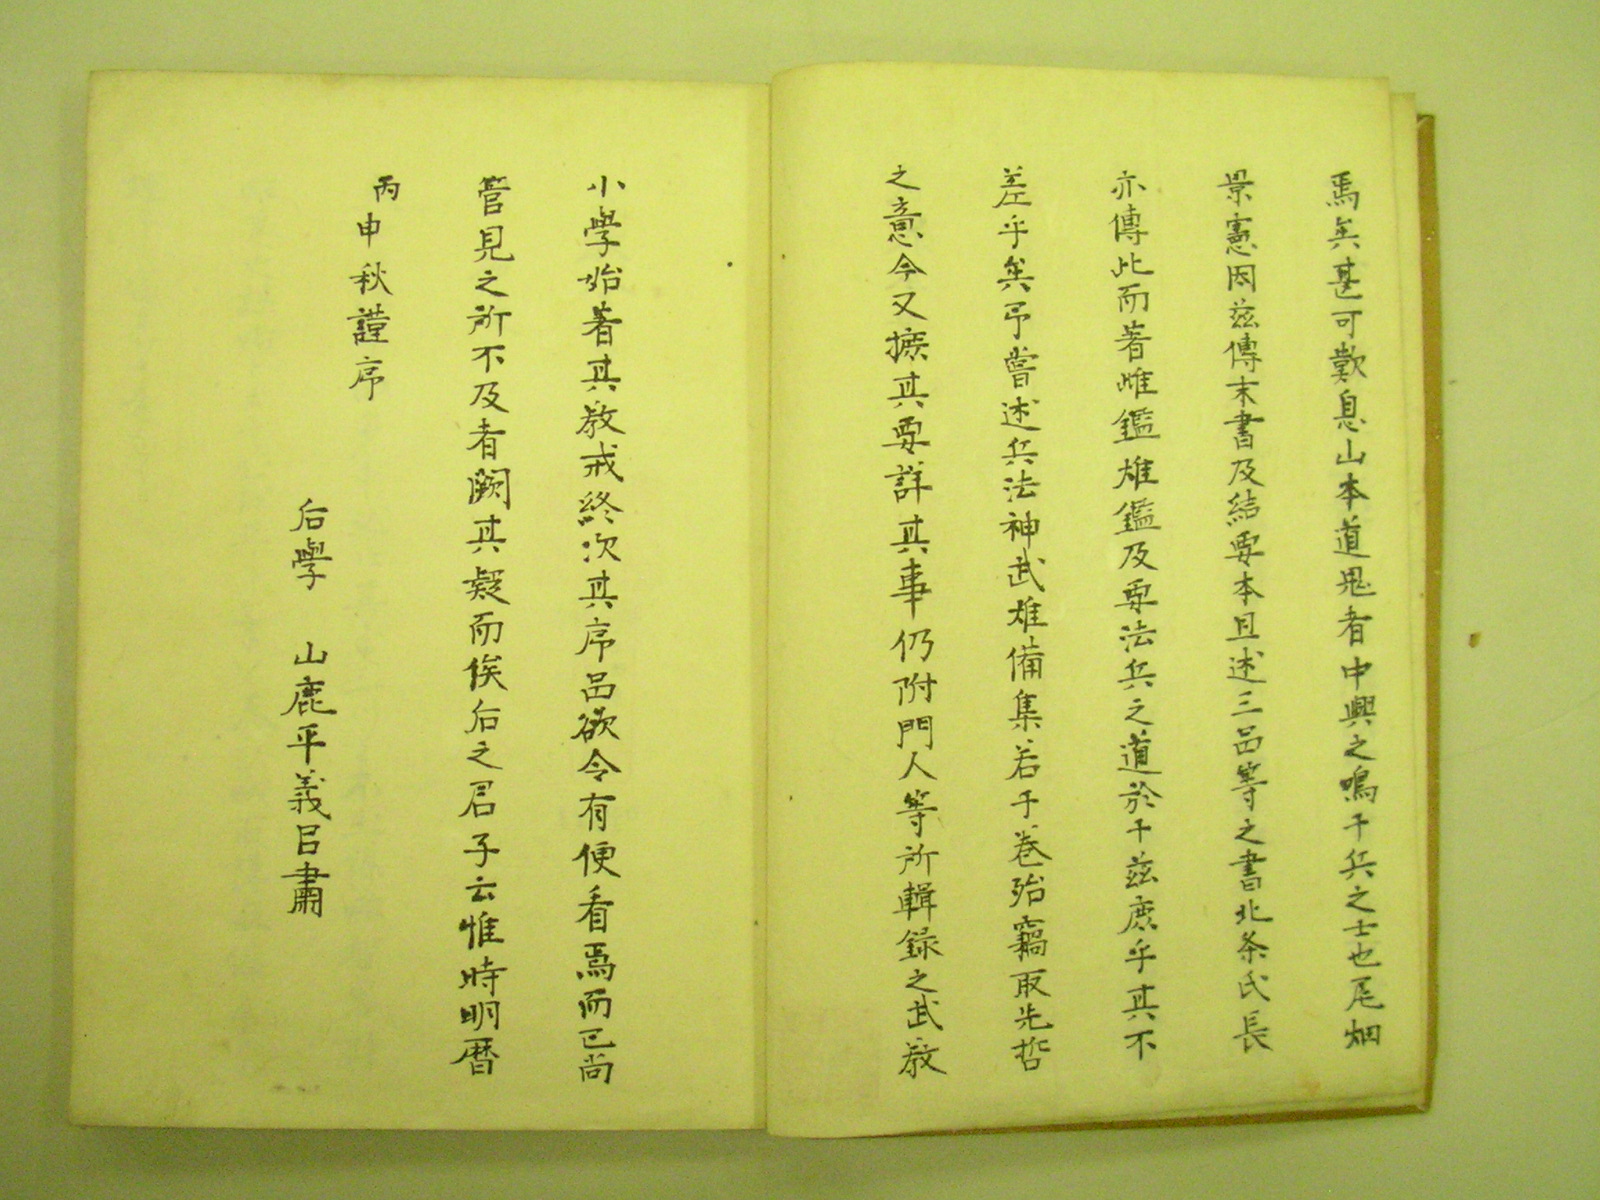 焉矣甚可歎息山本道鬼者中興之鳴于兵之士也尾畑
景憲因茲傳末書及結要本且述三品等之書北条氏長
亦傳此而著雌鑑雄鑑及要法兵之道於于茲庶乎其不
差乎矣予嘗述兵法神武雄備集若干巻殆竊取先哲
之意今又摭其要詳其事仍附門人等所輯録之武教
小學始著其教戒終次其序品欲令有便看焉而已尚
管見之所不及者闕其疑而俟后之君子云惟時明暦
丙申秋謹序
后學 山鹿平義㠯肅